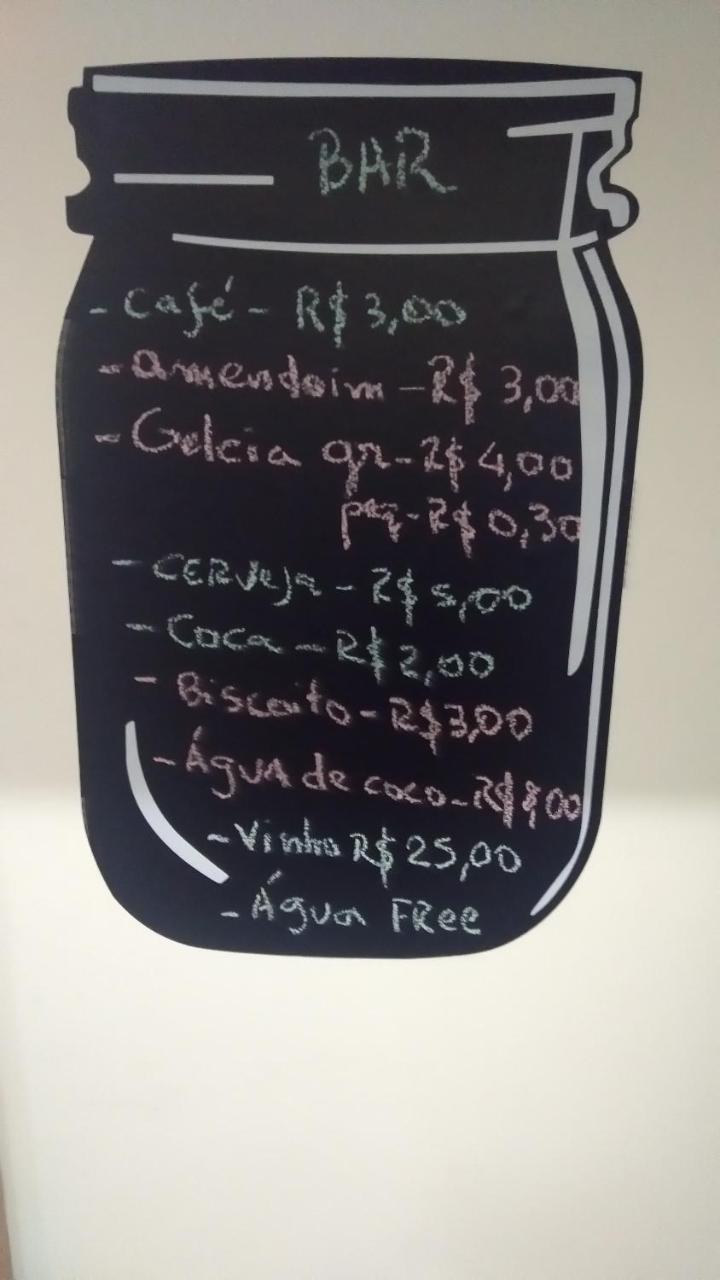 BAR
- Café - R$ 3,00
- amendoim - R$ 3,00
- Gelcia gr - R$ 4,00
peq - R$ 0,30
- CERVeja - R$ 5,00
- Coca - R$ 2,00
- Biscoito - R$ 3,00
- Água de coco - R$
- Vinho R$ 25,00
- Água FRee